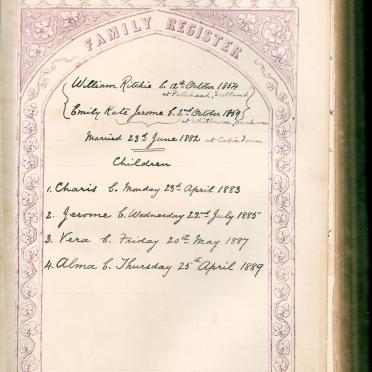 FAMILY REGISTER
William Ritchie b. 12th October 1854
at Peterhead, Scotland
Emily Kate Jerome b. 2nd October 1859
at
Married 23rd June 1882 at Cape Town
Children
1. Charis b. Monday 23rd April 1883
2. Jerome b. Wednesday 22nd July 1885
3. Vera b. Friday 20th May 1887
4. Alma b. Thursday 25th April 1889